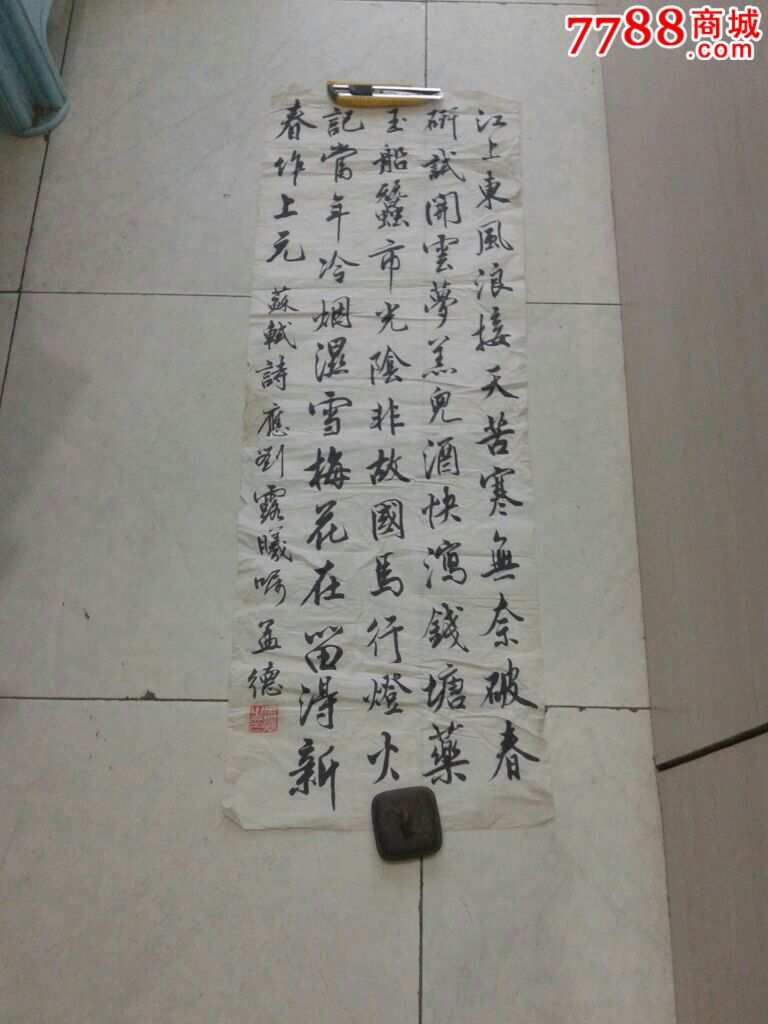 7788商城
.com
江上東風浪接天苦寒無奈破春
研試開雲夢羔兒酒快瀉錢塘藥
玉船蠶市光陰非故國馬行燈火
記當年冷烟濕雪梅花在留得新
春作上元 蘇軾詩 應劉露曦嘱 孟德